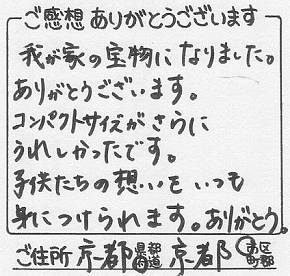 ご感想 ありがとうございます
我が家の宝物になりました。
ありがとうございます。
コンパクトサイズがさらに
うれしかったです。
子供たちの想いをいつも
身につけられます。ありがとう。
ご住所 京都 都道府県 京都 市区町郡